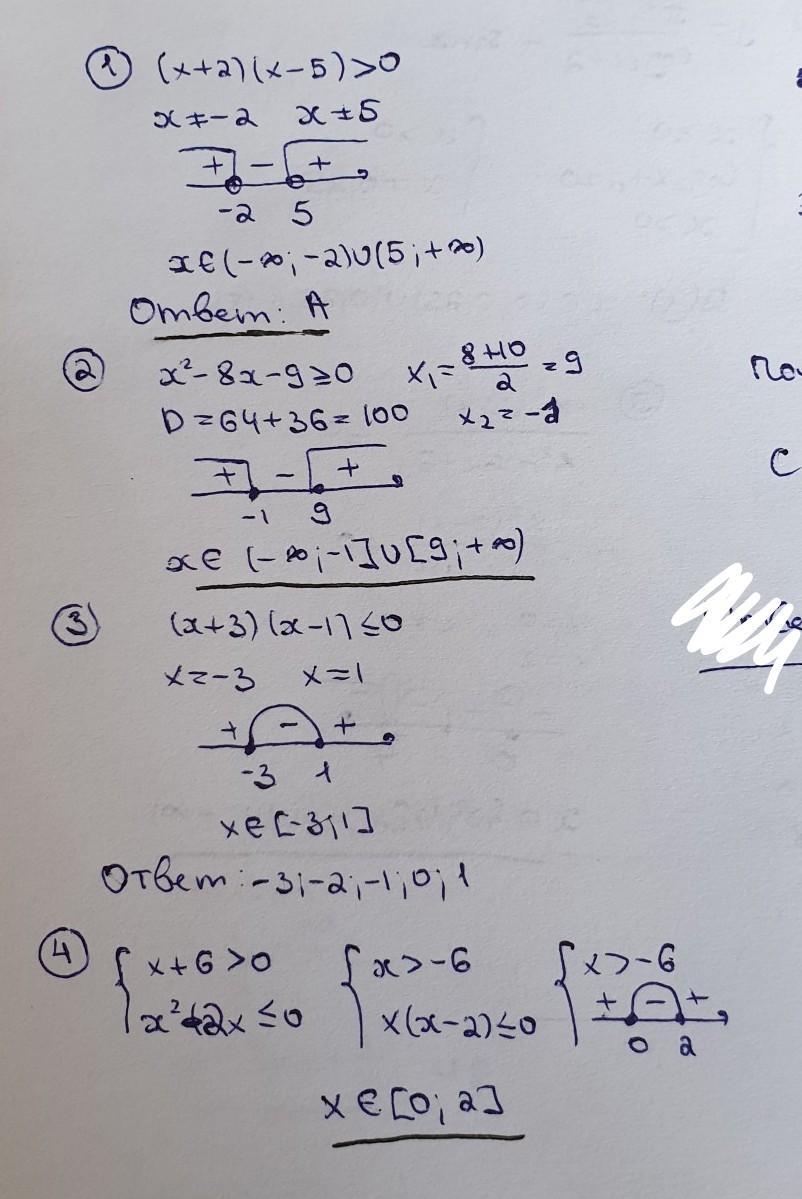 ① (x+2)(x-5)>0
x≠-2 x≠5
+ - +
-2 5
x∈(-∞;-2)∪(5;+∞)
Ответ: А
② x²-8x-9≥0 x₁=(8+10)/2=9
D=64+36=100 x₂=-1
+ - +
-1 9
x∈(-∞;-1]∪[9;+∞)
③ (x+3)(x-1)≤0
x=-3 x=1
+ - +
-3 1
x∈[-3;1]
Ответ: -3;-2;-1;0;1
④ { x+6>0 { x>-6 { x>-6
x²-2x≤0 x(x-2)≤0 + - +
0 2
x∈[0;2]
С